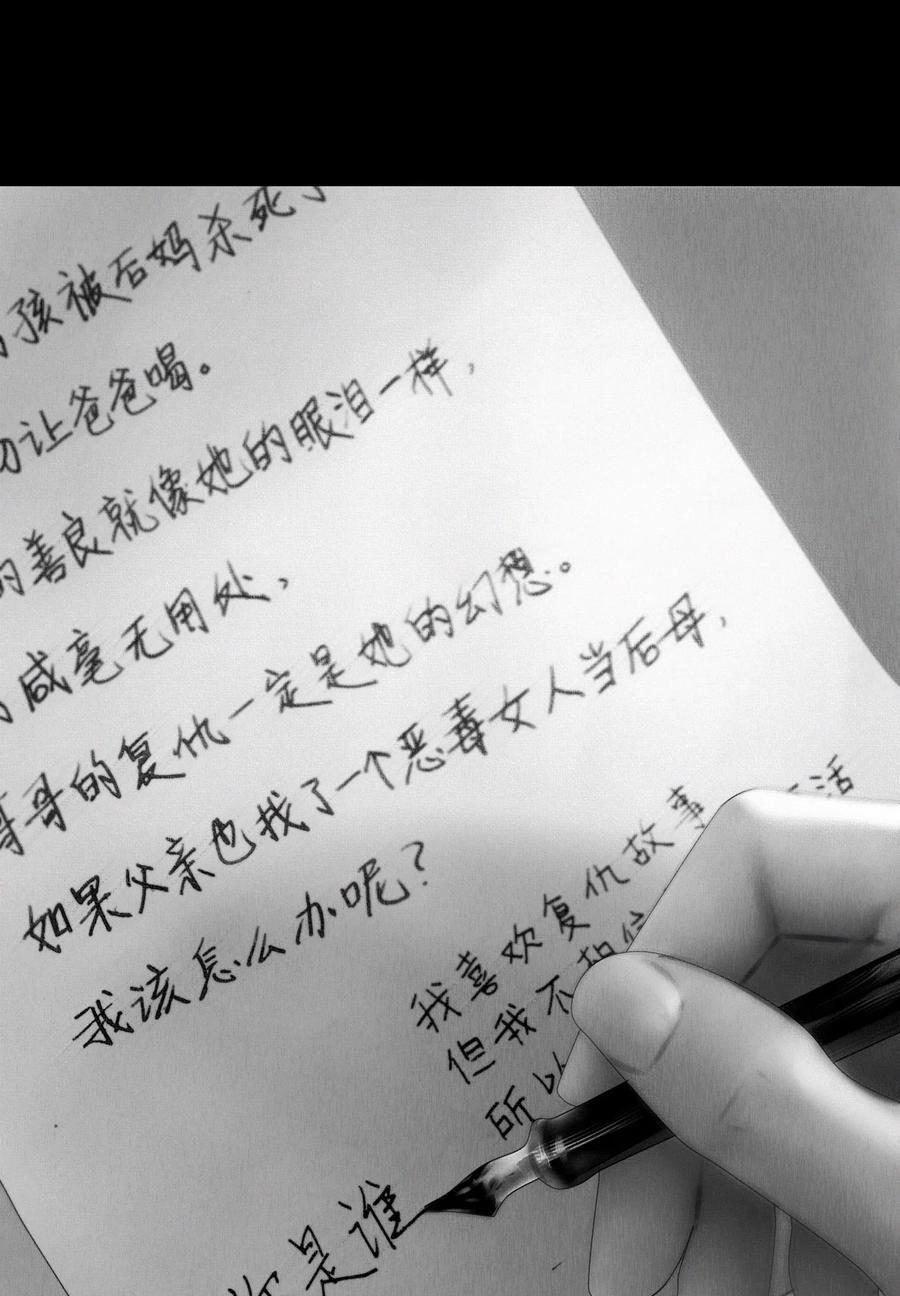 孩被后妈杀死了
让爸爸喝。
的善良就像她的眼泪一样,
咸毫无用处,
哥哥的复仇一定是她的幻想。
如果父亲也找了一个恶毒女人当后母,
我该怎么办呢?
我喜欢复仇故事 活
但我不相信
所以
你是谁